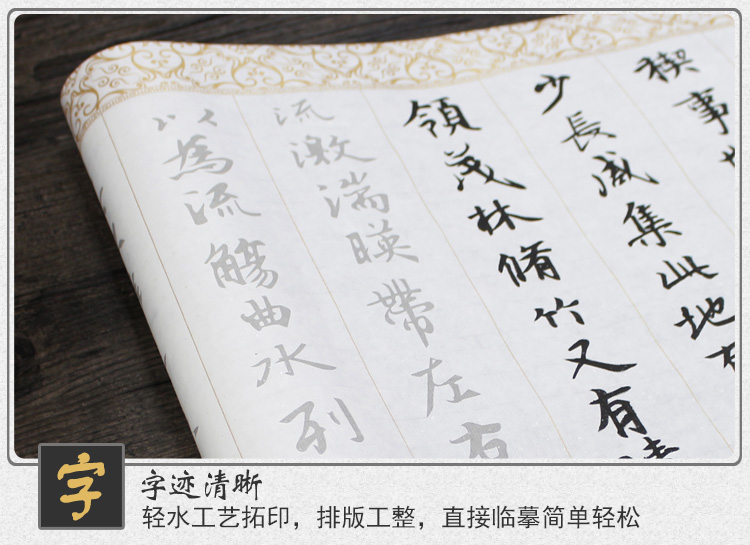 禊事
少長咸集此地
領茂林脩竹又有清
流激湍暎帶左右
以為流觴曲水列
字
字迹清晰
轻水工艺拓印，排版工整，直接临摹简单轻松